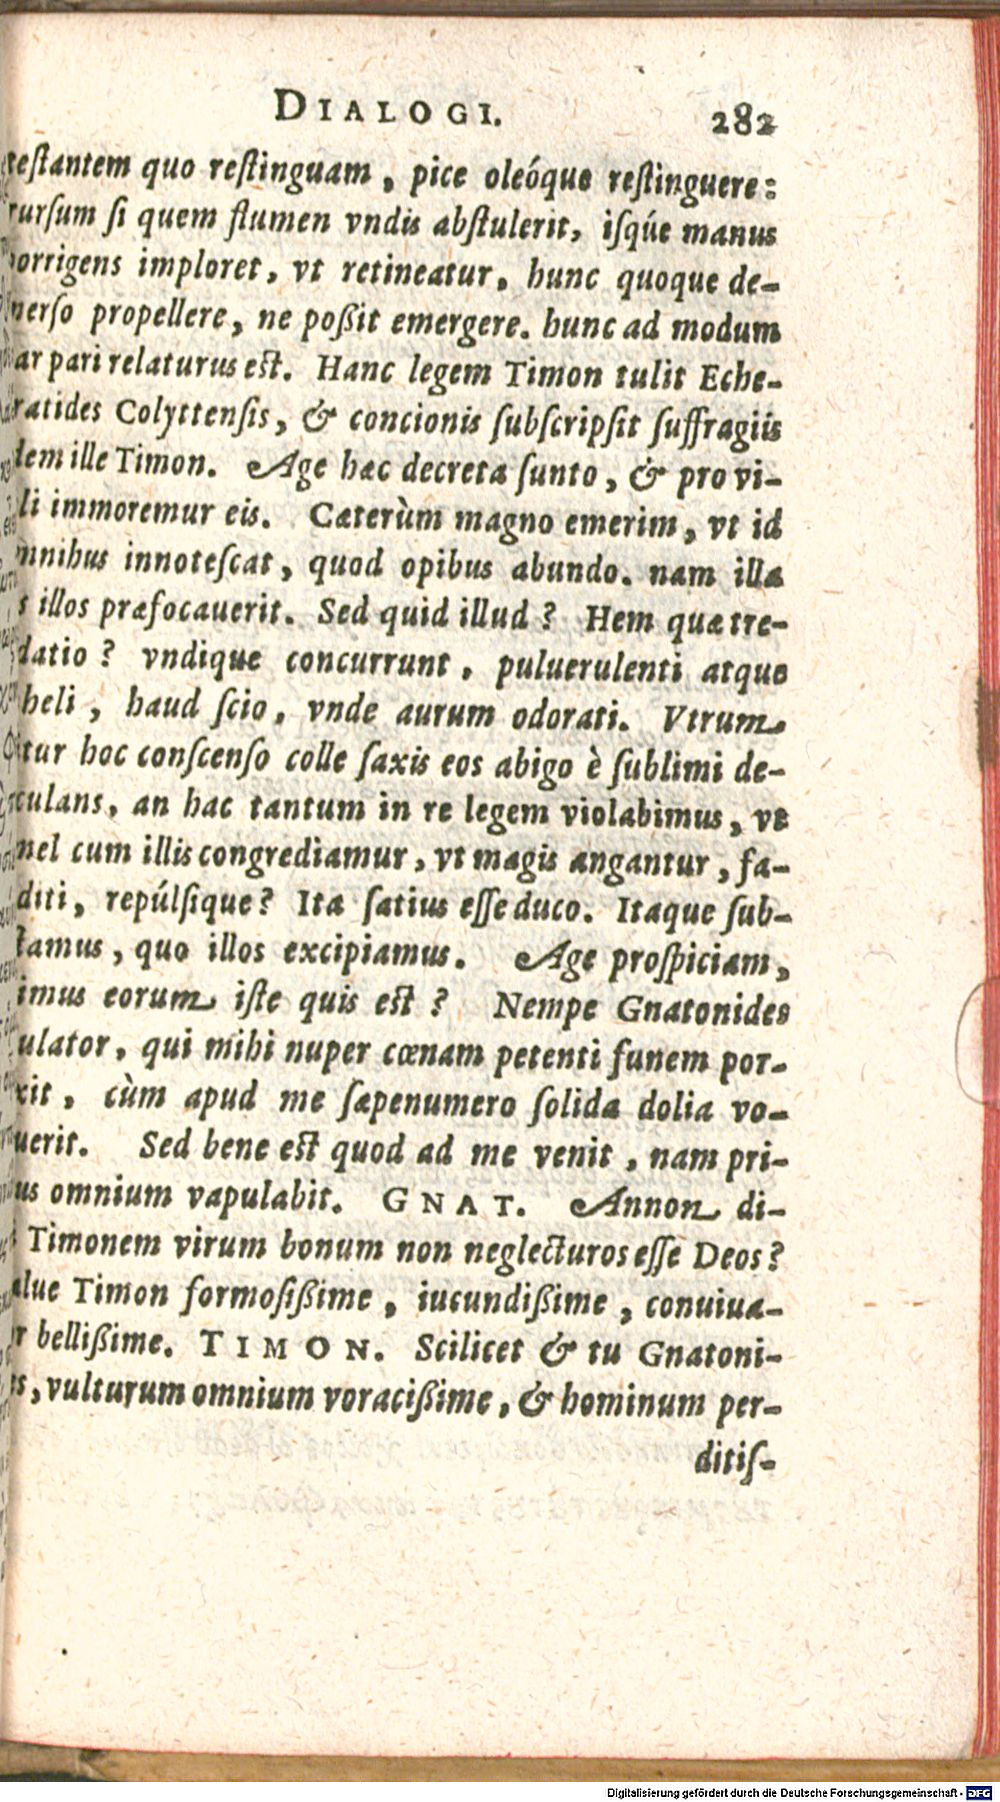 DIALOGI. 282
testantem quo restinguam, pice oleóque restinguere:
rursum si quem flumen vndis abstulerit, isqúe manus
porrigens imploret, vt retineatur, hunc quoque de-
nerso propellere, ne poßit emergere. hunc ad modum
ar pari relaturus est. Hanc legem Timon tulit Eche-
ratides Colyttensis, & concionis subscripsit suffragiis
dem ille Timon. Age hæc decreta sunto, & pro vi-
li immoremur eis. Cæterùm magno emerim, vt id
mnibus innotescat, quod opibus abundo. nam illa
s illos præfocauerit. Sed quid illud? Hem quæ tre-
datio? vndique concurrunt, puluerulenti atque
heli, haud scio, vnde aurum odorati. Vtrum
itur hoc conscenso colle saxis eos abigo è sublimi de-
culans, an hac tantum in re legem violabimus, vt
mel cum illis congrediamur, vt magis angantur, fa-
diti, repúlsique? Ita satius esse duco. Itaque sub-
stamus, quo illos excipiamus. Age prospiciam,
imus eorum iste quis est? Nempe Gnatonides
ulator, qui mihi nuper cœnam petenti funem por-
xit, cùm apud me sæpenumero solida dolia vo-
uerit. Sed bene est quod ad me venit, nam pri-
us omnium vapulabit. GNAT. Annon di-
i Timonem virum bonum non neglecturos esse Deos?
alue Timon formosißime, iucundißime, conuiua-
r bellißime. TIMON. Scilicet & tu Gnatoni-
es, vulturum omnium voracißime, & hominum per-
ditis-
Digitalisierung gefördert durch die Deutsche Forschungsgemeinschaft - DFG